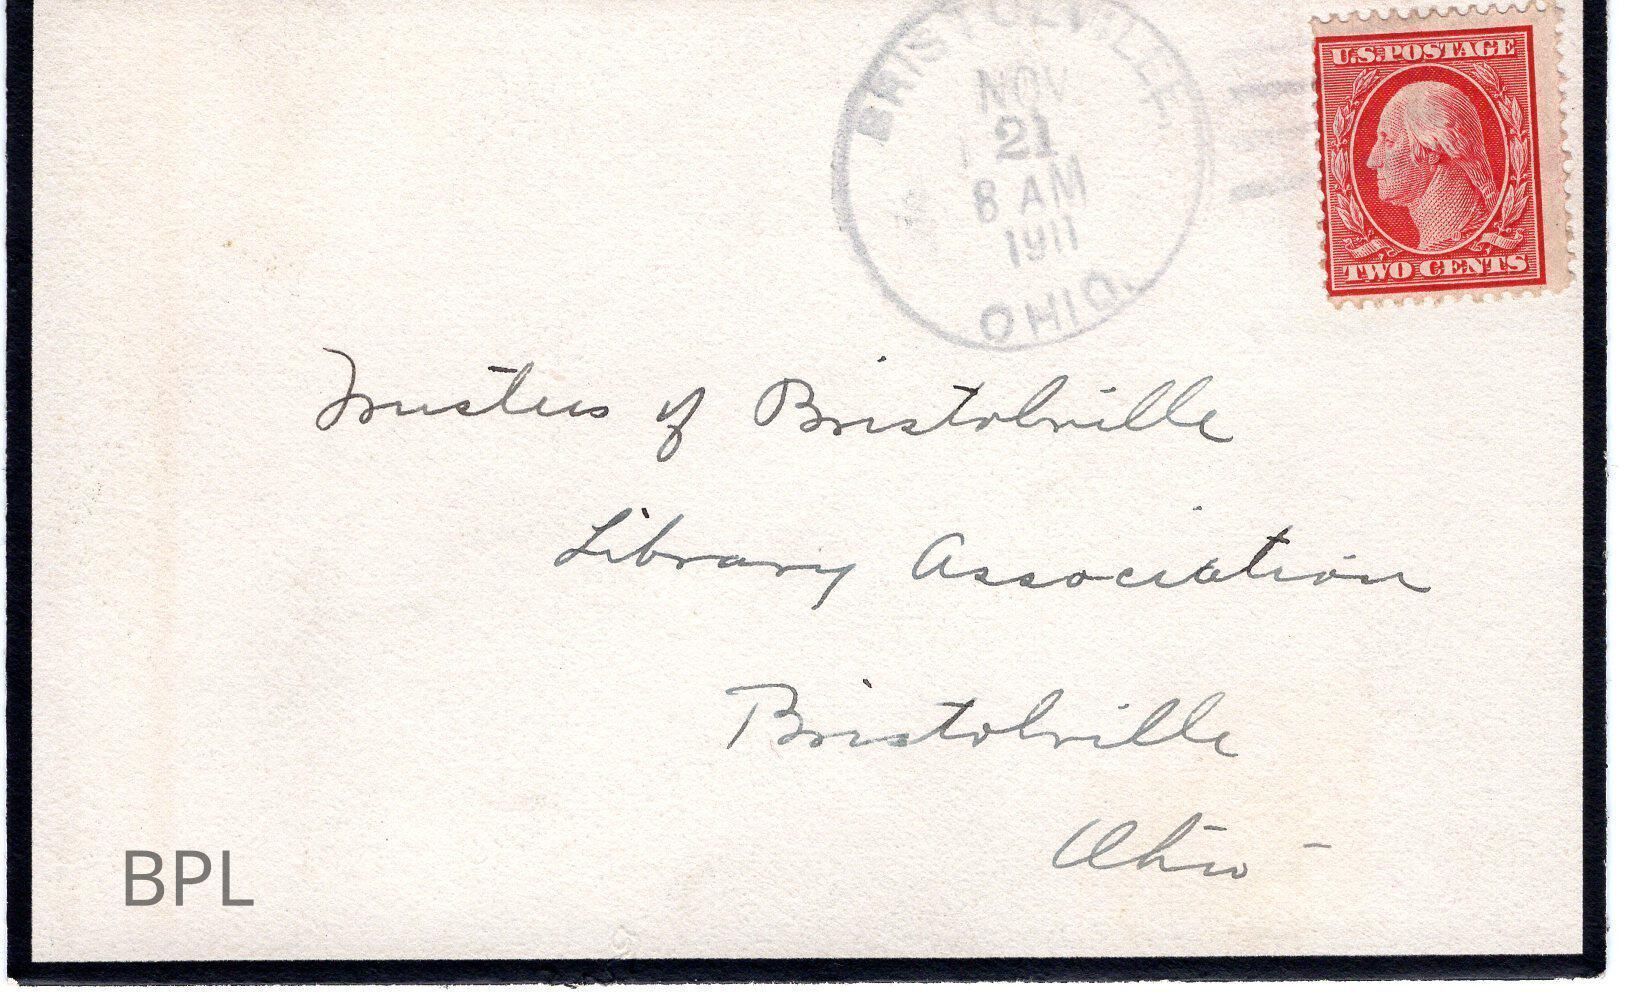 BRISTOLVILLE
NOV
21
8 AM
1911
OHIO.
U.S. POSTAGE
TWO CENTS
Trustees of Bristolville
Library Association
Bristolville
Ohio -
BPL